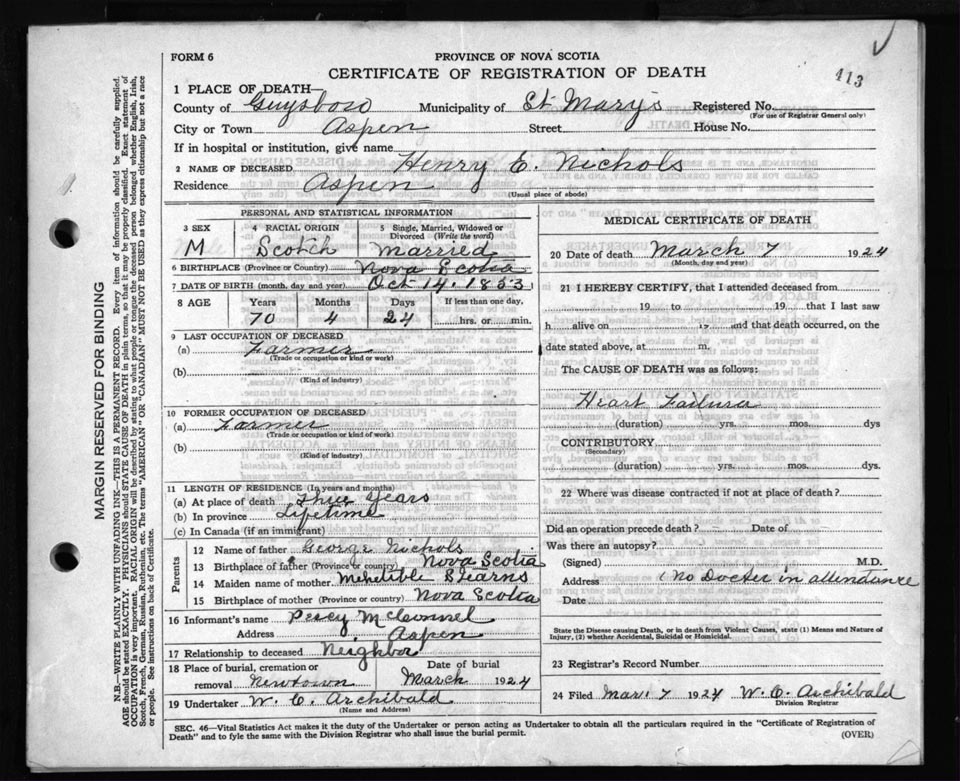 FORM 6
PROVINCE OF NOVA SCOTIA
CERTIFICATE OF REGISTRATION OF DEATH
413
1 PLACE OF DEATH—
County of Guysboro Municipality of St Mary's Registered No.
(For use of Registrar General only)
City or Town Aspen Street House No.
If in hospital or institution, give name
2 NAME OF DECEASED Henry E. Nichols
Residence Aspen
(Usual place of abode)
PERSONAL AND STATISTICAL INFORMATION
3 SEX
M
4 RACIAL ORIGIN
Scotch
5 Single, Married, Widowed or Divorced (Write the word)
Married
6 BIRTHPLACE (Province or Country) Nova Scotia
7 DATE OF BIRTH (month, day, year) Oct 14. 1853
8 AGE Years Months Days If less than one day,
70 4 24 hrs. or min.
9 LAST OCCUPATION OF DECEASED
(a) Farmer
(Trade or occupation or kind or work)
(b)
(Kind of industry)
10 FORMER OCCUPATION OF DECEASED
(a) Farmer
(Trade or occupation or kind of work)
(b)
(Kind of industry)
11 LENGTH OF RESIDENCE (In years and months)
(a) At place of death Three Years
(b) In province Lifetime
(c) In Canada (if an immigrant)
Parents
12 Name of father George Nichols
13 Birthplace of father (Province or country) Nova Scotia
14 Maiden name of mother Mehetible Stearns
15 Birthplace of mother (Province or country) Nova Scotia
16 Informant's name Percy McConnel
Address Aspen
17 Relationship to deceased Neighbor
18 Place of burial, cremation or removal Newtown
Date of burial
March 1924
19 Undertaker W. C. Archibald
(Name and Address)
MEDICAL CERTIFICATE OF DEATH
20 Date of death March 7 1924
(Month, day and year)
21 I HEREBY CERTIFY, that I attended deceased from
19 to 19 that I last saw
h alive on 19 and that death occurred, on the
date stated above, at m.
The CAUSE OF DEATH was as follows:
Heart Failure
(duration) yrs. mos. dys
CONTRIBUTORY
(Secondary)
(duration) yrs. mos. dys.
22 Where was disease contracted if not at place of death?
Did an operation precede death? Date of
Was there an autopsy?
(Signed) M.D.
Address (No Docter in attendance
Date
State the Disease causing Death, or in death from Violent Causes, state (1) Means and Nature of
Injury, (2) whether Accidental, Suicidal or Homicidal.
23 Registrar's Record Number
24 Filed Mar. 7 1924 W. C. Archibald
Division Registrar
SEC. 46—Vital Statistics Act makes it the duty of the Undertaker or person acting as Undertaker to obtain all the particulars required in the "Certificate of Registration of
Death" and to fyle the same with the Division Registrar who shall issue the burial permit.
(OVER)
MARGIN RESERVED FOR BINDING
N.B.—WRITE PLAINLY WITH UNFADING INK—THIS IS A PERMANENT RECORD. Every item of information should be carefully supplied.
AGE should be stated EXACTLY. PHYSICIANS should STATE CAUSE OF DEATH in plain terms, so that it may be properly classified. Exact statement of
OCCUPATION is very important. RACIAL ORIGIN will be described by stating to what people or tongue the deceased person belonged whether English, Irish,
Scotch, French, German, Russian, Ruthenian, etc. The terms "AMERICAN" or "CANADIAN" MUST NOT BE USED as they express citizenship but not a race
or people. See instructions on back of Certificate.